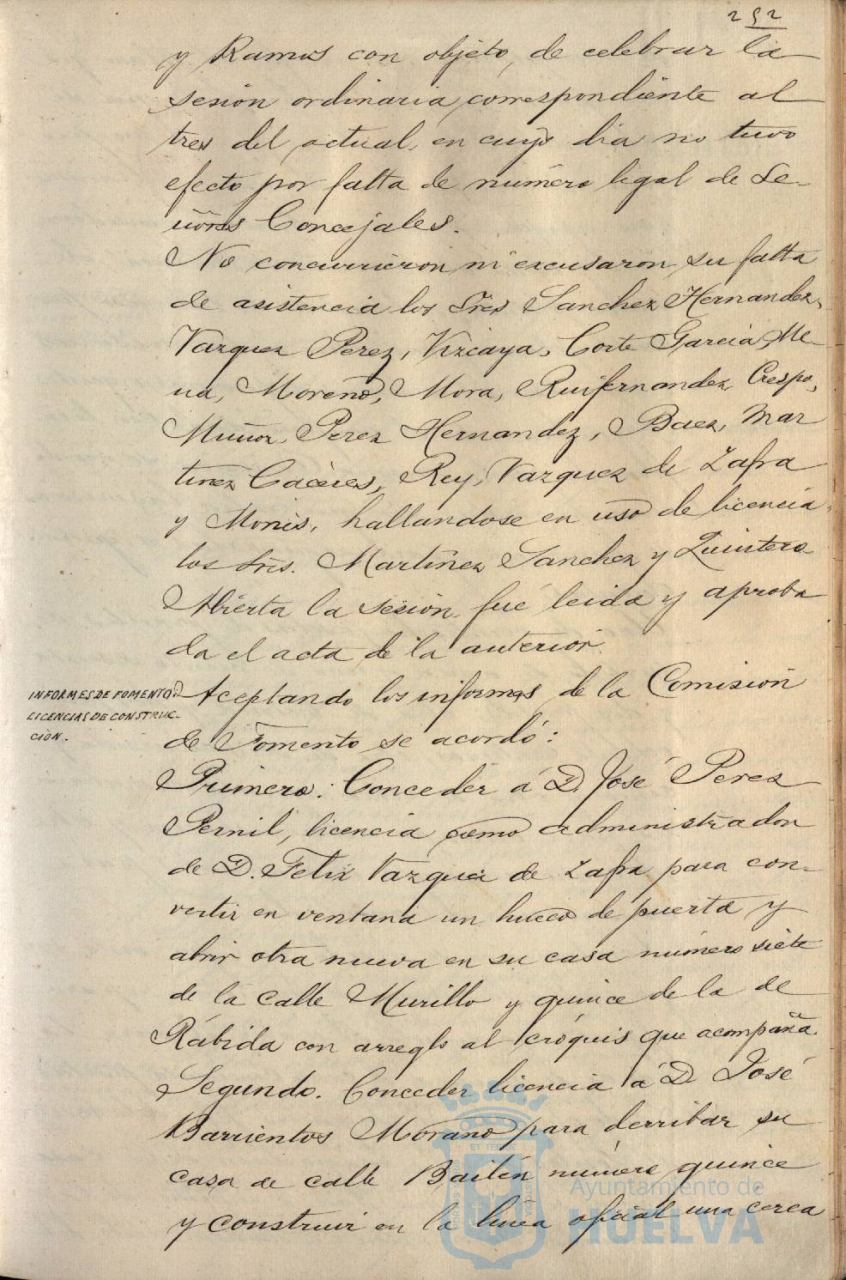 252
y Ramos con objeto, de celebrar la
sesión ordinaria correspondiente al
tres del actual, en cuyo dia no tuvo
efecto por falta de número legal de Se-
ñores Concejales.
No concurrieron ni excusaron su falta
de asistencia los Sres Sanchez Hernandez,
Vazquez Perez, Vizcaya, Corte Garcia, Me-
na, Moreno, Mora, Ruifernandez, Crespo,
Muñoz, Perez Hernandez, Baez, Mar
tinez Cáceres, Rey, Vazquez de Zafra
y Monis, hallandose en uso de licencia
los Sres. Martinez Sanchez y Quintero
Abierta la sesión, fué leida y aproba
da el acta de la anterior.
INFORMES DE FOMENTO
LICENCIAS DE CONSTRUC-
CIÓN.
Aceptando los informes de la Comisión
de Fomento se acordó:
Primero: Conceder á D. José Perez
Pernil, licencia como administrador
de D. Felix Vazquez de Zafra para con-
vertir en ventana un hueco de puerta y
abrir otra nueva en su casa número siete
de la calle Murillo y quince de la de
Rábida con arreglo al cróquis que acompaña.
Segundo. Conceder licencia á D. José
Barrientos Morano para derribar su
casa de calle Bailén número quince
y construir en la linea oficial una cerca
Ayuntamiento de
HUELVA